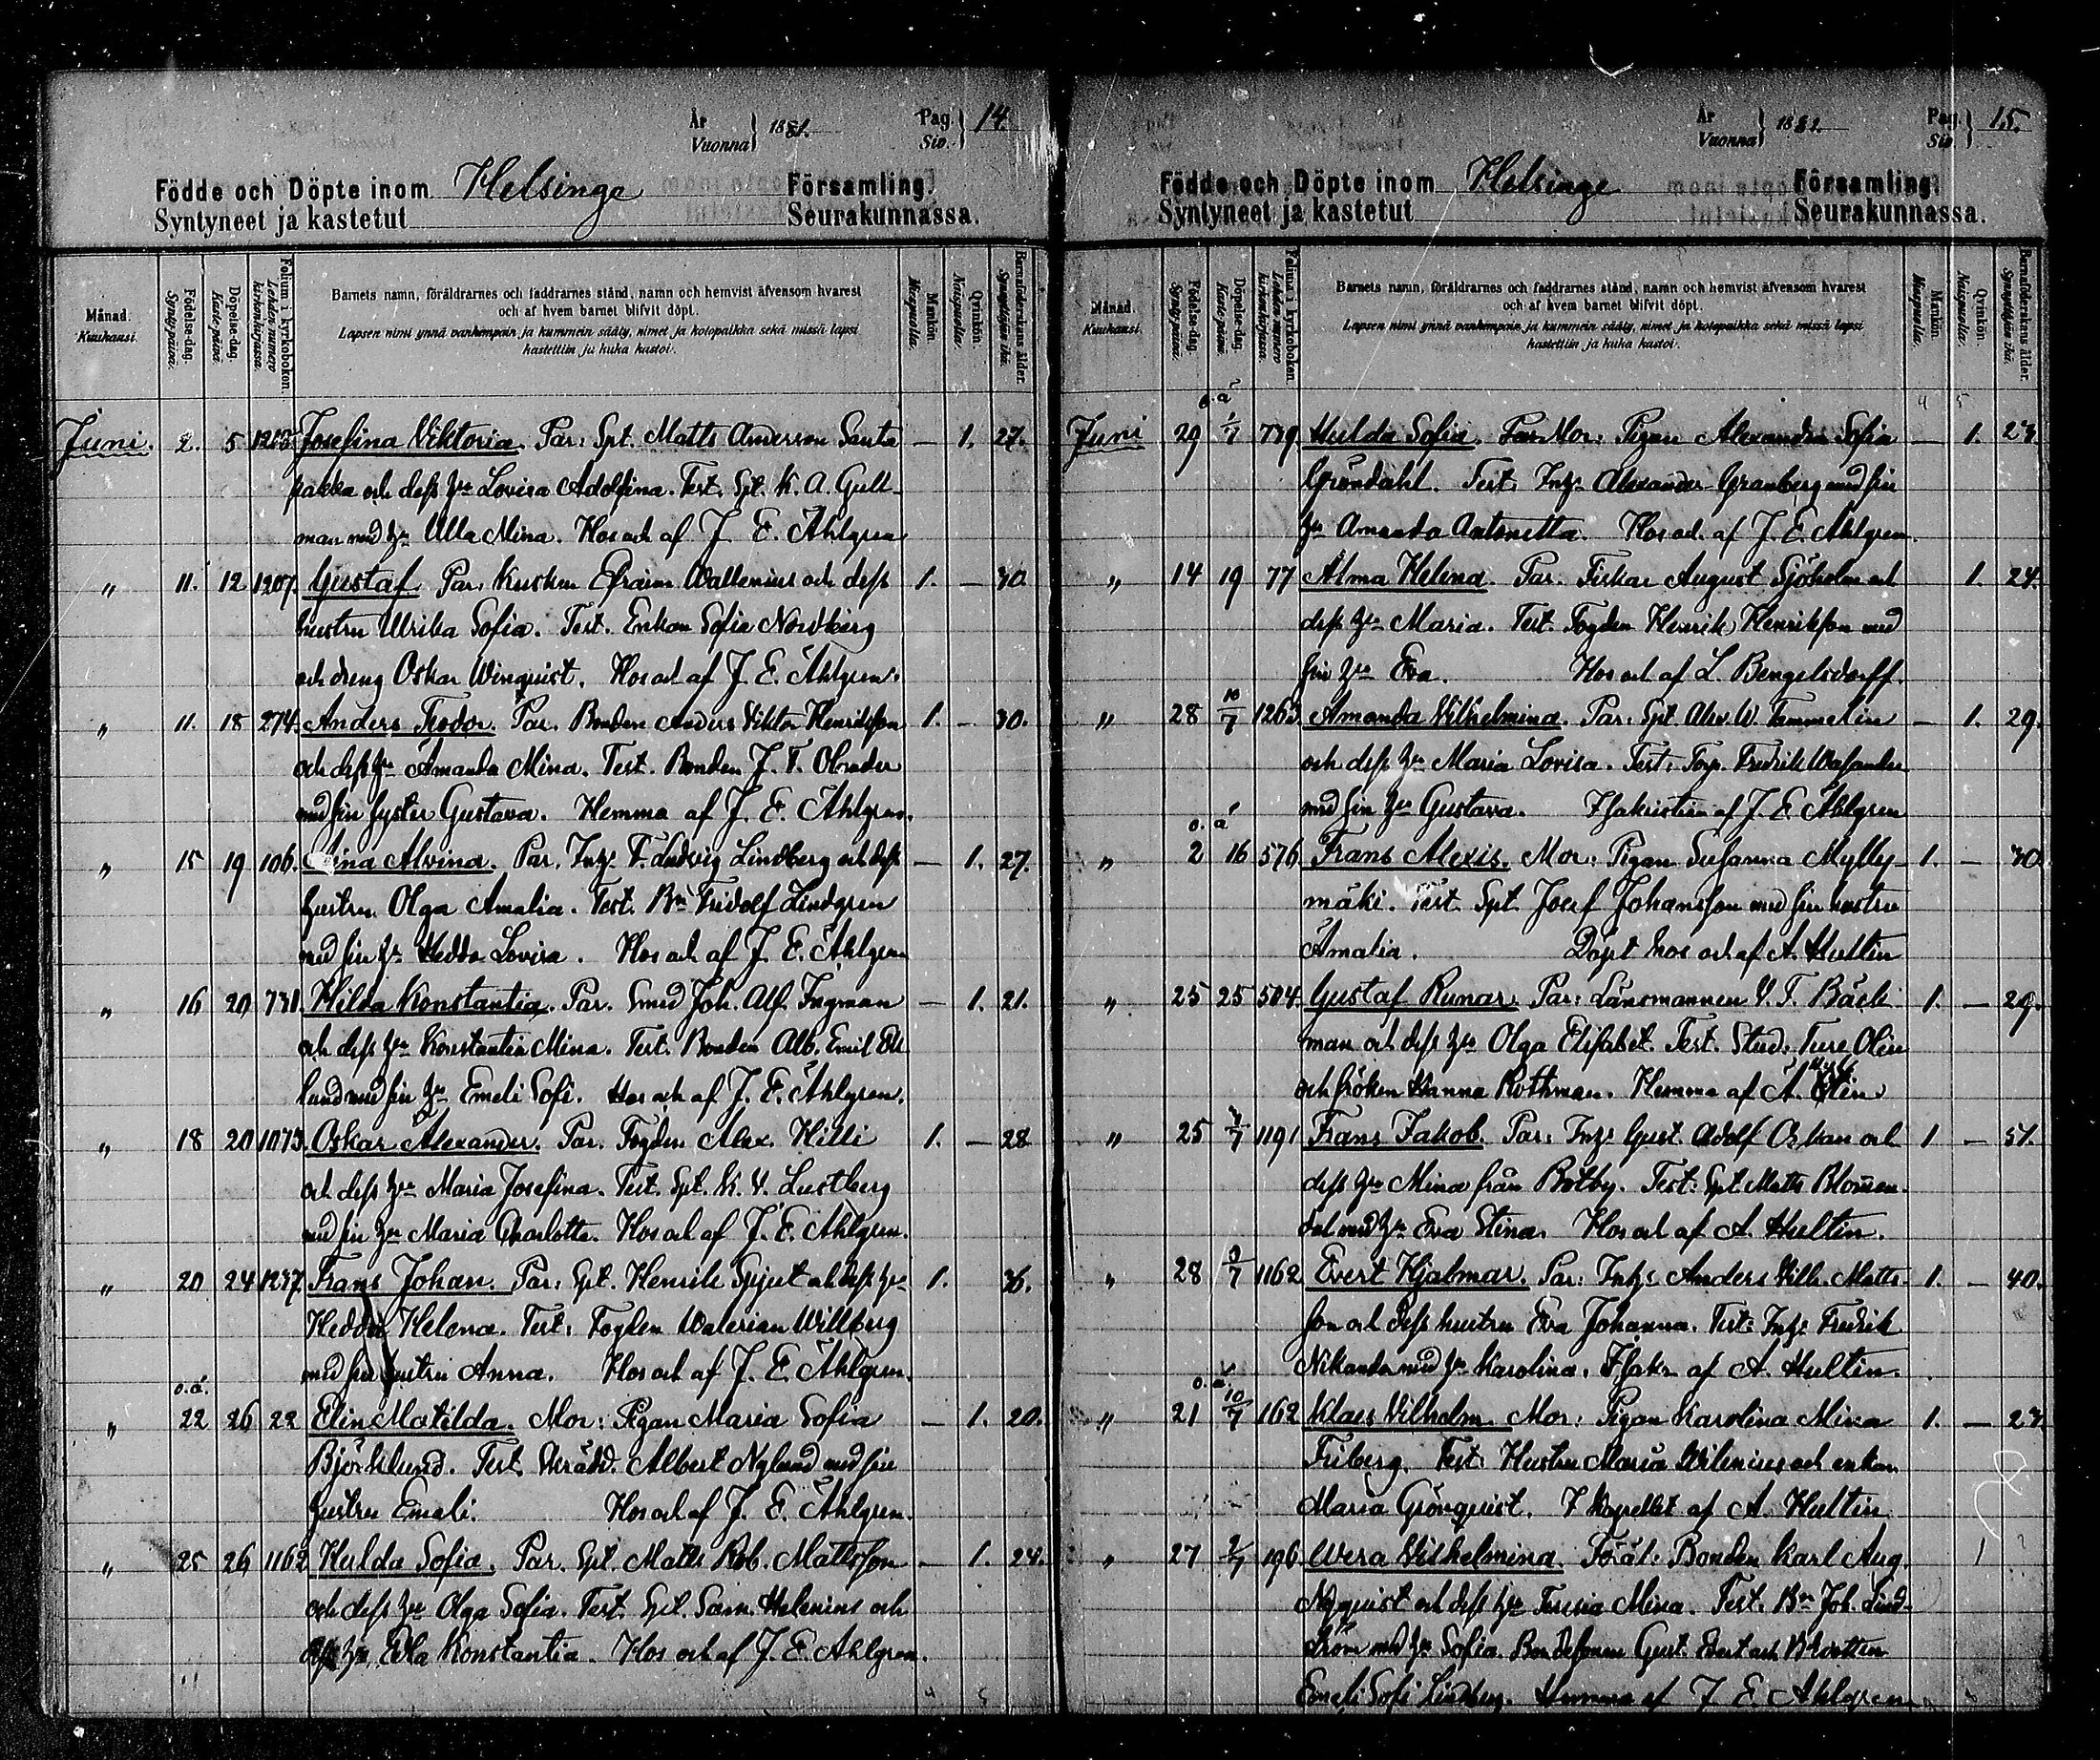 År
Vuonna } 1881.
Pag.
Siv. } 14.
Födde och Döpte inom Helsinge Församling.
Syntyneet ja kastetut Seurakunnassa.
Månad.
Kuukausi.
Födelse-dag.
Synty-päivä.
Döpelse-dag.
Kaste-päivä.
Folium i kyrkoboken.
Lehden numero kirkonkirjassa.
Barnets namn, föräldrarnes och faddrarnes stånd, namn och hemvist äfvensom hvarest
och af hvem barnet blifvit döpt.
Lapsen nimi ynnä vanhempain ja kummein sääty, nimet ja kotopaikka sekä missä lapsi
kastettiin ja kuka kastoi.
Mankön.
Miespuolia.
Qvinkön.
Naispuolia.
Barnaföderskans ålder.
Synnyttäjän ikä.
Juni. 2. 5 Josefina Viktoria. Par: Spt. Matts Anderson Santa — 1. 27.
pakka och dess hu Lovisa Adolfina. Test. Spt. K. A. Gull-
man med hu Ulla Mina. Hos och af J. E. Ahlgren
" 11. 12 1207. Gustaf. Par. Kusken Efraim Wallenius och dess 1. — 30
hustru Ulrika Sofia. Test. Enkan Sofia Nordberg
och dreng Oskar Winquist. Hos och af J. E. Ahlgren.
" 11. 18 274. Anders Teodor. Par. Bonden Anders Viktor Henriksson 1. — 30.
och dess hu Amanda Mina. Test. Bonden J. T.
med sin syster Gustava. Hemma af J. E. Ahlgren.
" 15 19 106. Alvina. Par. Inhs F. Ludvig Lindberg och dess — 1. 27.
hustru Olga Amalia. Test. Bn Fridolf Lindgren
med sin hu Hedda Lovisa. Hos och af J. E. Ahlgren
" 16 20 731. Hilda Konstantia. Par. Smed Joh. Alf. Ingman — 1. 21.
och dess hu Konstantia Mina. Test. Bonden Alb. Emil
lund med sin hu Emeli Sofi. Hos och af J. E. Ahlgren.
" 18 20 1073. Oskar Alexander. Par. Fogden Alex. Hilli 1. — 28
och dess hu Maria Josefina. Test. Spt. K. V. Lustberg
med sin hu Maria Charlotta. Hos och af J. E. Ahlgren.
" 20 24 1237. Frans Johan. Par: Spt. Henrik och dess hu 1. 36.
Hedda Helena. Test: Fogden Walerian Willberg
med sin hustru Anna. Hos och af J. E. Ahlgren.
o.ä.
" 22 26 22 Elin Matilda. Mor: Pigan Maria Sofia — 1. 20.
Björklund. Test. Skrädd. Albert Nylund med sin
hustru Emeli. Hos och af J. E. Ahlgren.
" 25 26 1162 Hulda Sofia. Par. Spt. Matts Rob. Mattsson — 1. 24.
och dess hu Olga Sofia. Test. Spt. Sam. Helenius och
dess hu Konstantia. Hos och af J. E. Ahlgren.
År
Vuonna } 1881.
Pag.
Siv. } 15.
Födde och Döpte inom Helsinge Församling.
Syntyneet ja kastetut Seurakunnassa.
Månad.
Kuukausi.
Födelse-dag.
Synty-päivä.
Döpelse-dag.
Kaste-päivä.
Folium i kyrkoboken.
Lehden numero kirkonkirjassa.
Barnets namn, föräldrarnes och faddrarnes stånd, namn och hemvist äfvensom hvarest
och af hvem barnet blifvit döpt.
Lapsen nimi ynnä vanhempain ja kummein sääty, nimet ja kotopaikka sekä missä lapsi
kastettiin ja kuka kastoi.
Mankön.
Miespuolia.
Qvinkön.
Naispuolia.
Barnaföderskans ålder.
Synnyttäjän ikä.
o.ä
Juni 29 1/7 779. Hulda Sofia. Mor: Pigan Alexandra Sofia — 1. 23
Gröndahl. Test. Inhs Alexander Granberg med sin
hu Amanda Antonetta. Hos och af J. E. Ahlgren.
" 14 19 77 Alma Helena. Par. Fiskar August Sjöholm och 1. 24.
dess hu Maria. Test. Fogden Henrik Henriksson med
sin hu Eva. Hos och af L. Bengelsdorff.
" 28 10/7 1263. Amanda Vilhelmina. Par: Spt. Alex. W. Tammelin — 1. 29.
och dess hu Maria Lovisa. Test: Torp. Fredrik Wasander
med sin hu Gustava. I sakristian af J. E. Ahlgren
o.ä
" 2 16 576 Frans Alexis. Mor: Pigan Susanna Mylly- 1. — 30
mäki. Test. Spt. Josef Johansson med sin hustru
Amalia. Döpt hos och af A. Hultin
" 25 25 504. Gustaf Runar. Par: Länsmannen V. T. Bäck- 1. — 29.
man och dess hu Olga Elisabet. Test. Stud. Ture Olin
och fröken Hanna Rothman. Hemma af A.
" 25 1191 Frans Jakob. Par: Inhs Gust. Adolf och 1 — 51.
dess hu Mina från Botby. Test: Spt Matts Blomen-
dal med hu Eva Stina. Hos och af A. Hultin.
" 28 3/7 1162 Evert Hjalmar. Par: Inhs Anders Vilh. Matts- 1. — 40.
son och dess hustru Eva Johanna. Test: Inhs Fredrik
Nikander med hu Karolina. I sakr. af A. Hultin.
o.ä.
" 21 10/7 162 Klaes Vilhelm. Mor: Pigan Karolina Mina 1. — 23
Friberg. Test: Hustru Maria Wilenius och enkan
Maria Grönquist. I kapellet af A. Hultin
" 27 2/7 196 Wera Wilhelmina. Förät: Bonden Karl Aug. 1
Nyquist och dess hu Teresia Mina. Test. Bn Joh. Lind-
ström med hu Sofia. Bondesonen Gust. Evert och
Emeli Sofi Lindberg. Hemma af J. E. Ahlgren